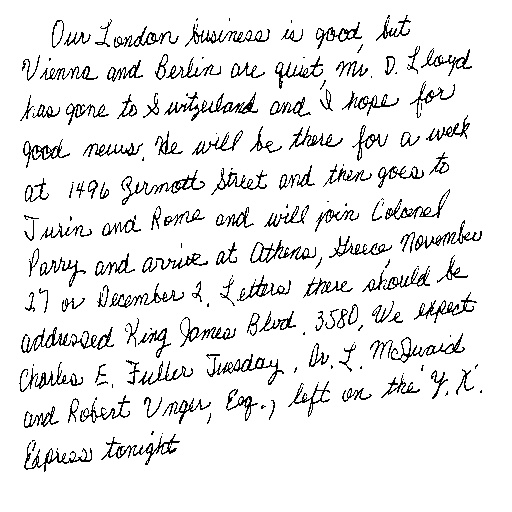 Our London business is good, but
Vienna and Berlin are quiet. Mr. D. Lloyd
has gone to Switzerland and I hope for
good news. He will be there for a week
at 1496 Zermott Street and then goes to
Turin and Rome and will join Colonel
Parry and arrive at Athens, Greece, November
27 or December 2. Letters there should be
addressed King James Blvd. 3580. We expect
Charles E. Fuller Tuesday. Dr. L. McQuaid
and Robert Unger, Esq., left on the "Y. X."
Express tonight